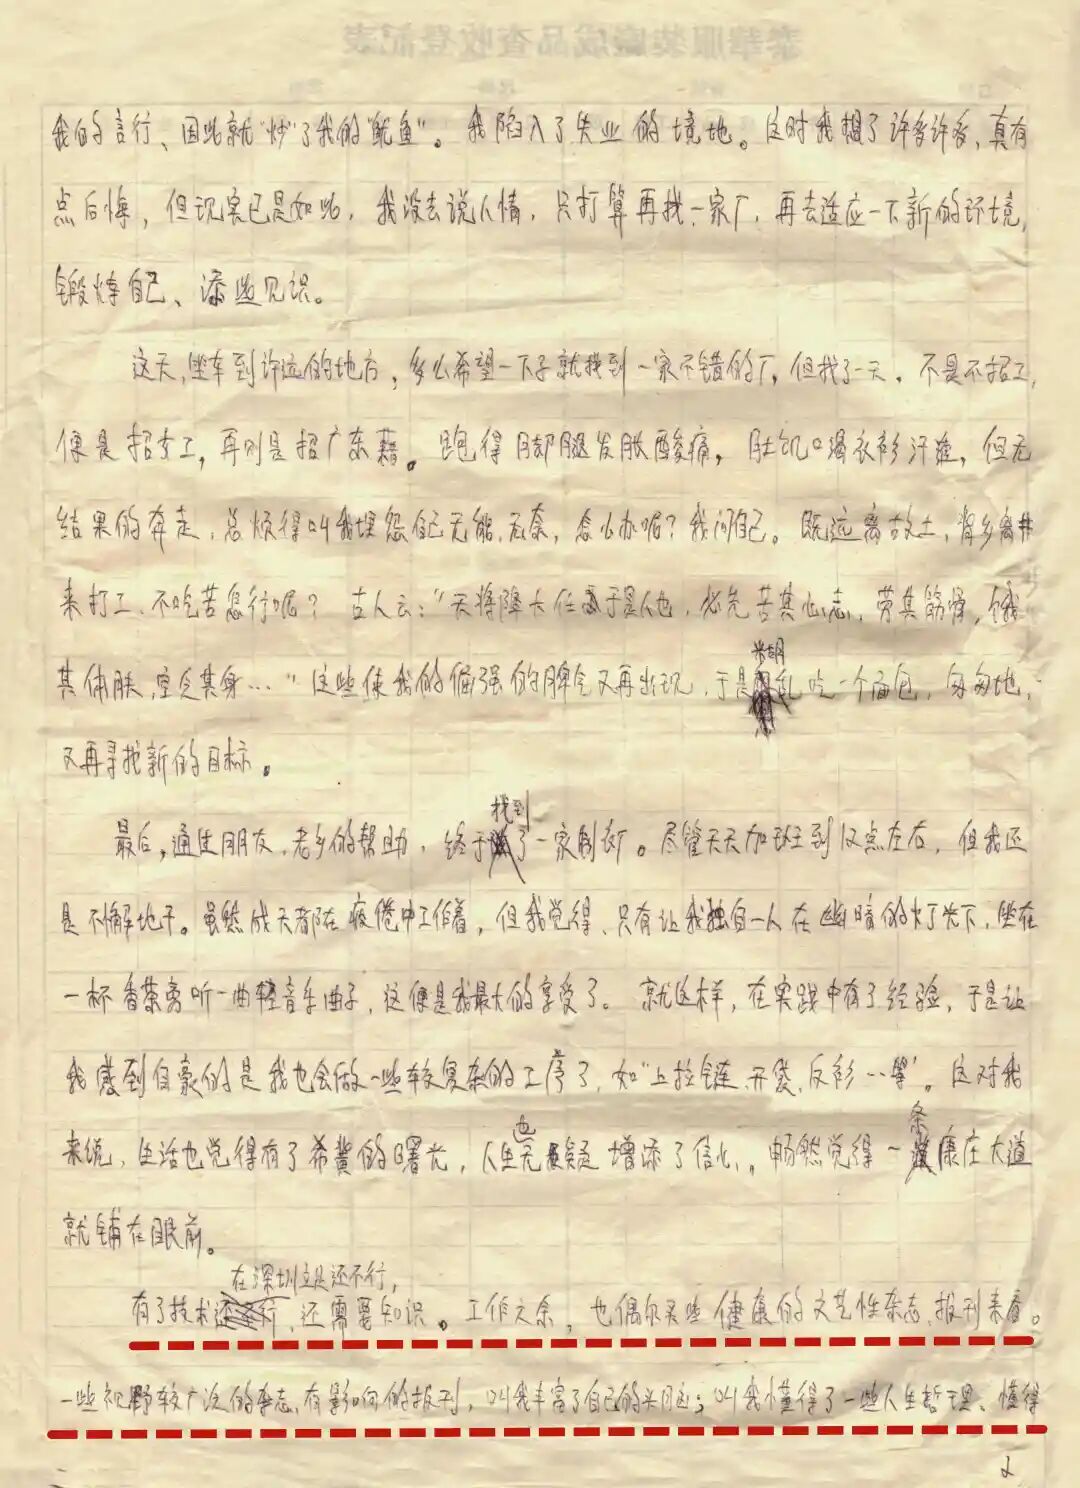 泰華服装廠成品查收登記表
我的言行、因此就“炒”了我的“鱿鱼”。我陷入了失业的境地。这时我想了许多许多，真有
点后悔，但现实已是如此，我没去说人情，只打算再找一家厂，再去适应一下新的环境，
锻炼自己、添些见识。
这天，坐车到许远的地方，多么希望一下子就找到一家不错的厂，但找了一天，不是不招工，
便是招女工，再则是招广东籍。跑得脚腿发胀酸痛，肚饥口渴衣衫汗，但无
结果的奔走，总烦得叫我埋怨自己无能、无奈，怎么办呢？我问自己。既远离故土，背乡离井
来打工、不吃苦怎行呢？古人云：“天将降大任于是人也，必先苦其心志，劳其筋骨，饿
其体肤，空乏其身…”这些使我的倔强的脾气又再出现，于是糊乱吃一个面包，匆匆地，
又再寻找新的目标。
最后，通过朋友、老乡的帮助，终于找到了一家制衣厂。尽管天天加班到12点左右，但我还
是不懈地干。虽然成天都在疲倦中工作着，但我觉得、只有让我独自一人在幽暗的灯光下，坐在
一杯香茶旁听一曲轻音乐曲子，这便是我最大的享受了。就这样，在实践中有了经验，于是让
我感到自豪的是我也会做一些较复杂的工序了，如“上拉链、开袋、反衫…等”。这对我
来说，生活也觉得有了希冀的曙光，人生也无疑增添了信心。畅然觉得一条康庄大道
就铺在眼前。
有了技术在深圳立足还不行，还需要知识。工作之余，也偶尔买些健康的文艺性杂志、报刊来看。
一些视野较广泛的杂志、有影响的报刊，叫我丰富了自己的头脑；叫我懂得了一些人生哲理、懂得
2